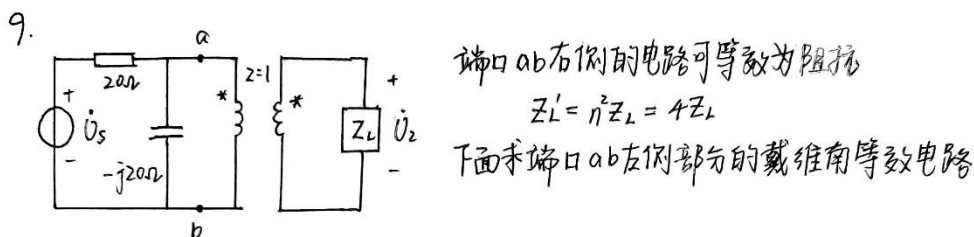 9.
a
20Ω
2=1
*
*
+
U̇s
-
-j20Ω
ZL
+
U̇2
-
b
端口ab右侧的电路可等效为阻抗
ZL' = n²ZL = 4ZL
下面求端口ab左侧部分的戴维南等效电路